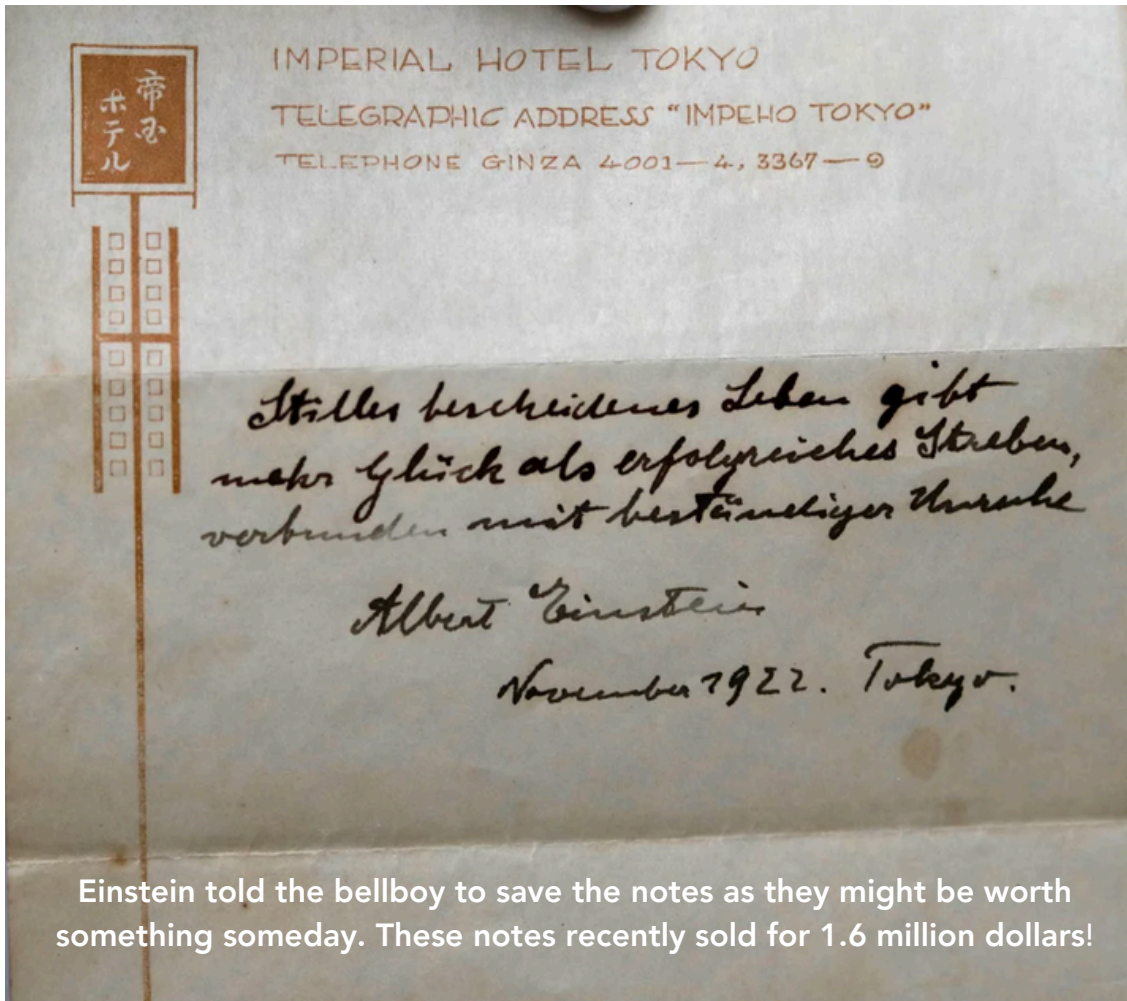 帝国
ホテル
IMPERIAL HOTEL TOKYO
TELEGRAPHIC ADDRESS "IMPEHO TOKYO"
TELEPHONE GINZA 4001—4, 3367—9
Stilles bescheidenes Leben gibt
mehr Glück als erfolgreiches Streben,
verbunden mit beständiger Unruhe
Albert Einstein
November 1922. Tokyo.
Einstein told the bellboy to save the notes as they might be worth
something someday. These notes recently sold for 1.6 million dollars!